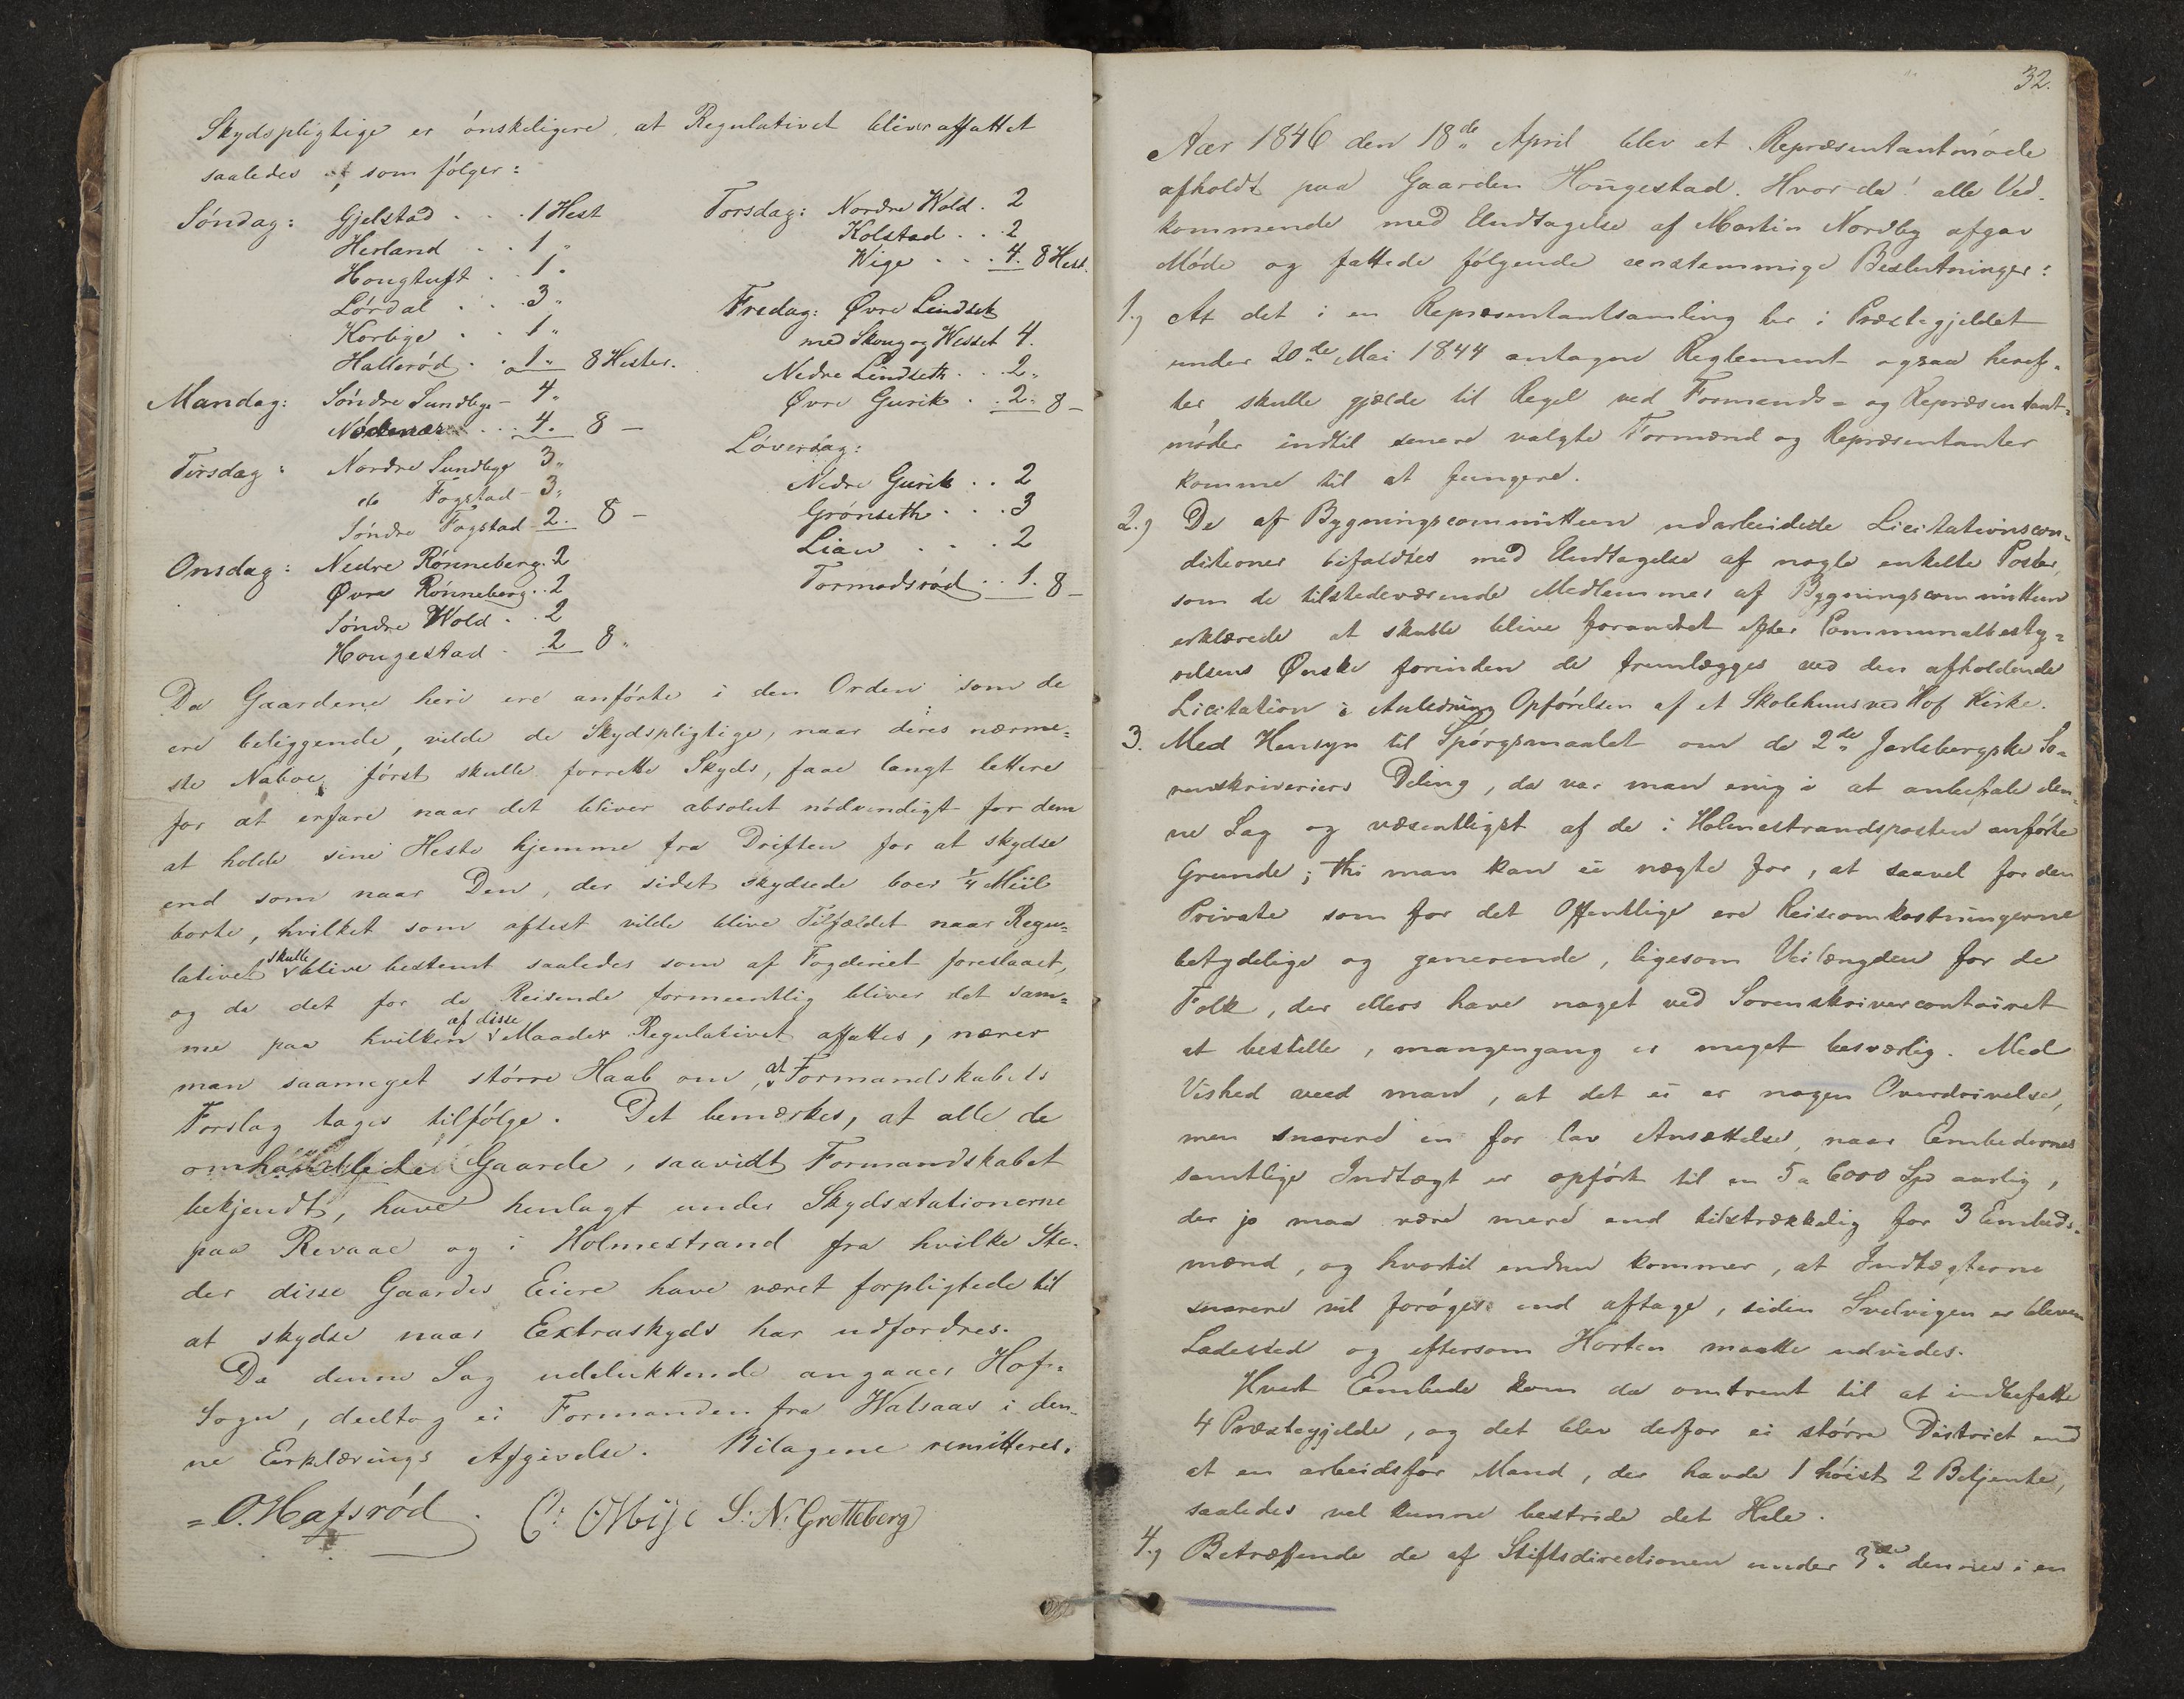 Skydspligtige er ønskeligere, at Regulativet bliver affattet
saaledes som følger:
Søndag: Gjelstad . . . 1 Hest
Herland . . 1 "
Hougtuft . . 1 "
Lørdal . . . 3 "
Korlige . . 1 "
Hallerød . . 1 " 8 Hester.
Mandag: Søndre Sundbye - 4 "
. . . 4. 8 —
Tirsdag: Nordre Sundbye 3 "
do Fogstad - 3 "
Søndre Fogstad 2. 8 —
Onsdag: Nedre Rønneberg. 2
Øvre Rønneberg. . 2
Søndre Wold . . 2
Hougestad . 2 8 "
Torsdag: Nordre Wold . 2
Kolstad . . . 2
Wige . . . 4. 8 Hest.
Fredag: Øvre Lindseth
med Skoug og Wesset 4.
Nedre Lindseth . . 2 "
Øvre Gurik . . 2. 8 —
Løverdag:
Nedre Gurik . . 2
Grønseth . . . 3
Lian . . . 2
Tormodsrød . . 1. 8 —
Da Gaardene heri ere anførte i den Orden som de
ere beliggende, vilde de Skydspligtige, naar deres nærme=
ste Naboe først skulle forrette Skyds, faae langt lettere
for at erfare naar det bliver absolut nødvendigt for dem
at holde sine Heste hjemme fra Driften for at skydse
end som naar Den, der sidst skydsede boer 1/4 Miil
borte, hvilket som oftest vilde blive Tilfældet naar Regu=
lativet skulle blive bestemt saaledes som af Fogderiet foreslaaet,
og da det for de Reisende formeentlig bliver det sam=
me paa hvilken af disse Maader Regulativet affattes, nærer
man saameget større Haab om, at Formandskabets
Forslag tages tilfølge. Det bemærkes, at alle de
omhandlede Gaarde, saavidt Formandskabet
bekjendt, have henlagt under Skydsstationerne
paa Revaae og i Holmestrand fra hvilke Ste=
der disse Gaardes Eiere have været forpligtede til
at skydse naar Extraskyds har udfordres.
Da denne Sag udelukkende angaaer Hof=
Sogn, deeltog ei Formanden fra Walsaas i den=
ne Erklærings Afgivelse. Bilagene remitteres.
O. Hafsrød. S: N: Gretteberg
32.
Aar 1846 den 18de April blev et Repræsentantmøde
afholdt paa Gaarden Hougestad. Hvor da alle Ved=
kommende med Undtagelse af Martin Nordby afgav
Møde og fattede følgende eenstemmige Beslutninger:
1.) At det i en Repræsentantsamling her i Præstegjeldet
under 20de Mai 1844 antagne Reglement ogsaa heref=
ter skulle gjælde til Regel ved Formands= og Repræsentant=
møder indtil senere valgte Formænd og Repræsentanter
komme til at fungere.
2.) De af Bygningscommitteen udarbeidede Licitationscon=
ditioner bifaldtes med Undtagelse af nogle enkelte Poster,
som de tilstedeværende Medlemmer af Bygningscommitteen
erklærede at skulle blive forandret efter Communalbesty=
relsens Ønske forinden de fremlægges ved den afholdende
Licitation i Anledning Opførelsen af et Skolehuus ved Hof Kirke.
3. Med Hensyn til Spørgsmaalet om de 2de Jarlsbergske So=
renskriveriers Deling, da var man enig i at anbefale den=
ne Sag og væsentligst af de i Holmestrandsposten anførte
Grunde; thi man kan ei nægte for, at saavel for den
Private som for det Offentlige ere Reiseomkostningerne
betydelige og generende, ligesom Veilængden for de
Folk, der ellers have noget ved Sorenskrivercontoiret
at bestille, mangengang er meget besværlig. Med
Vished veed man, at det ei er nogen Overdrivelse,
men snarere en for lav Ansættelse, naar Embedernes
samtlige Indtægt er opført til en 5 a 6000 Spd aarlig,
der jo maa være mere end tilstrækkelig for 3 Embeds=
mænd, og hvortil endnu kommer, at Indtægterne
snarere vil forøges end aftage, siden Svelvigen er bleven
Ladested og eftersom Horten maatte udvides.
Hvert Embede kom da omtrent til at indbefatte
4 Præstegjelde, og det blev derfor ei større District end
at en arbeidsfør Mand, der havde 1 høist 2 Betjente,
saaledes vel kunne bestride det Hele.
4.) Betræffende de af Stiftsdirectionen under 3de dennes i en